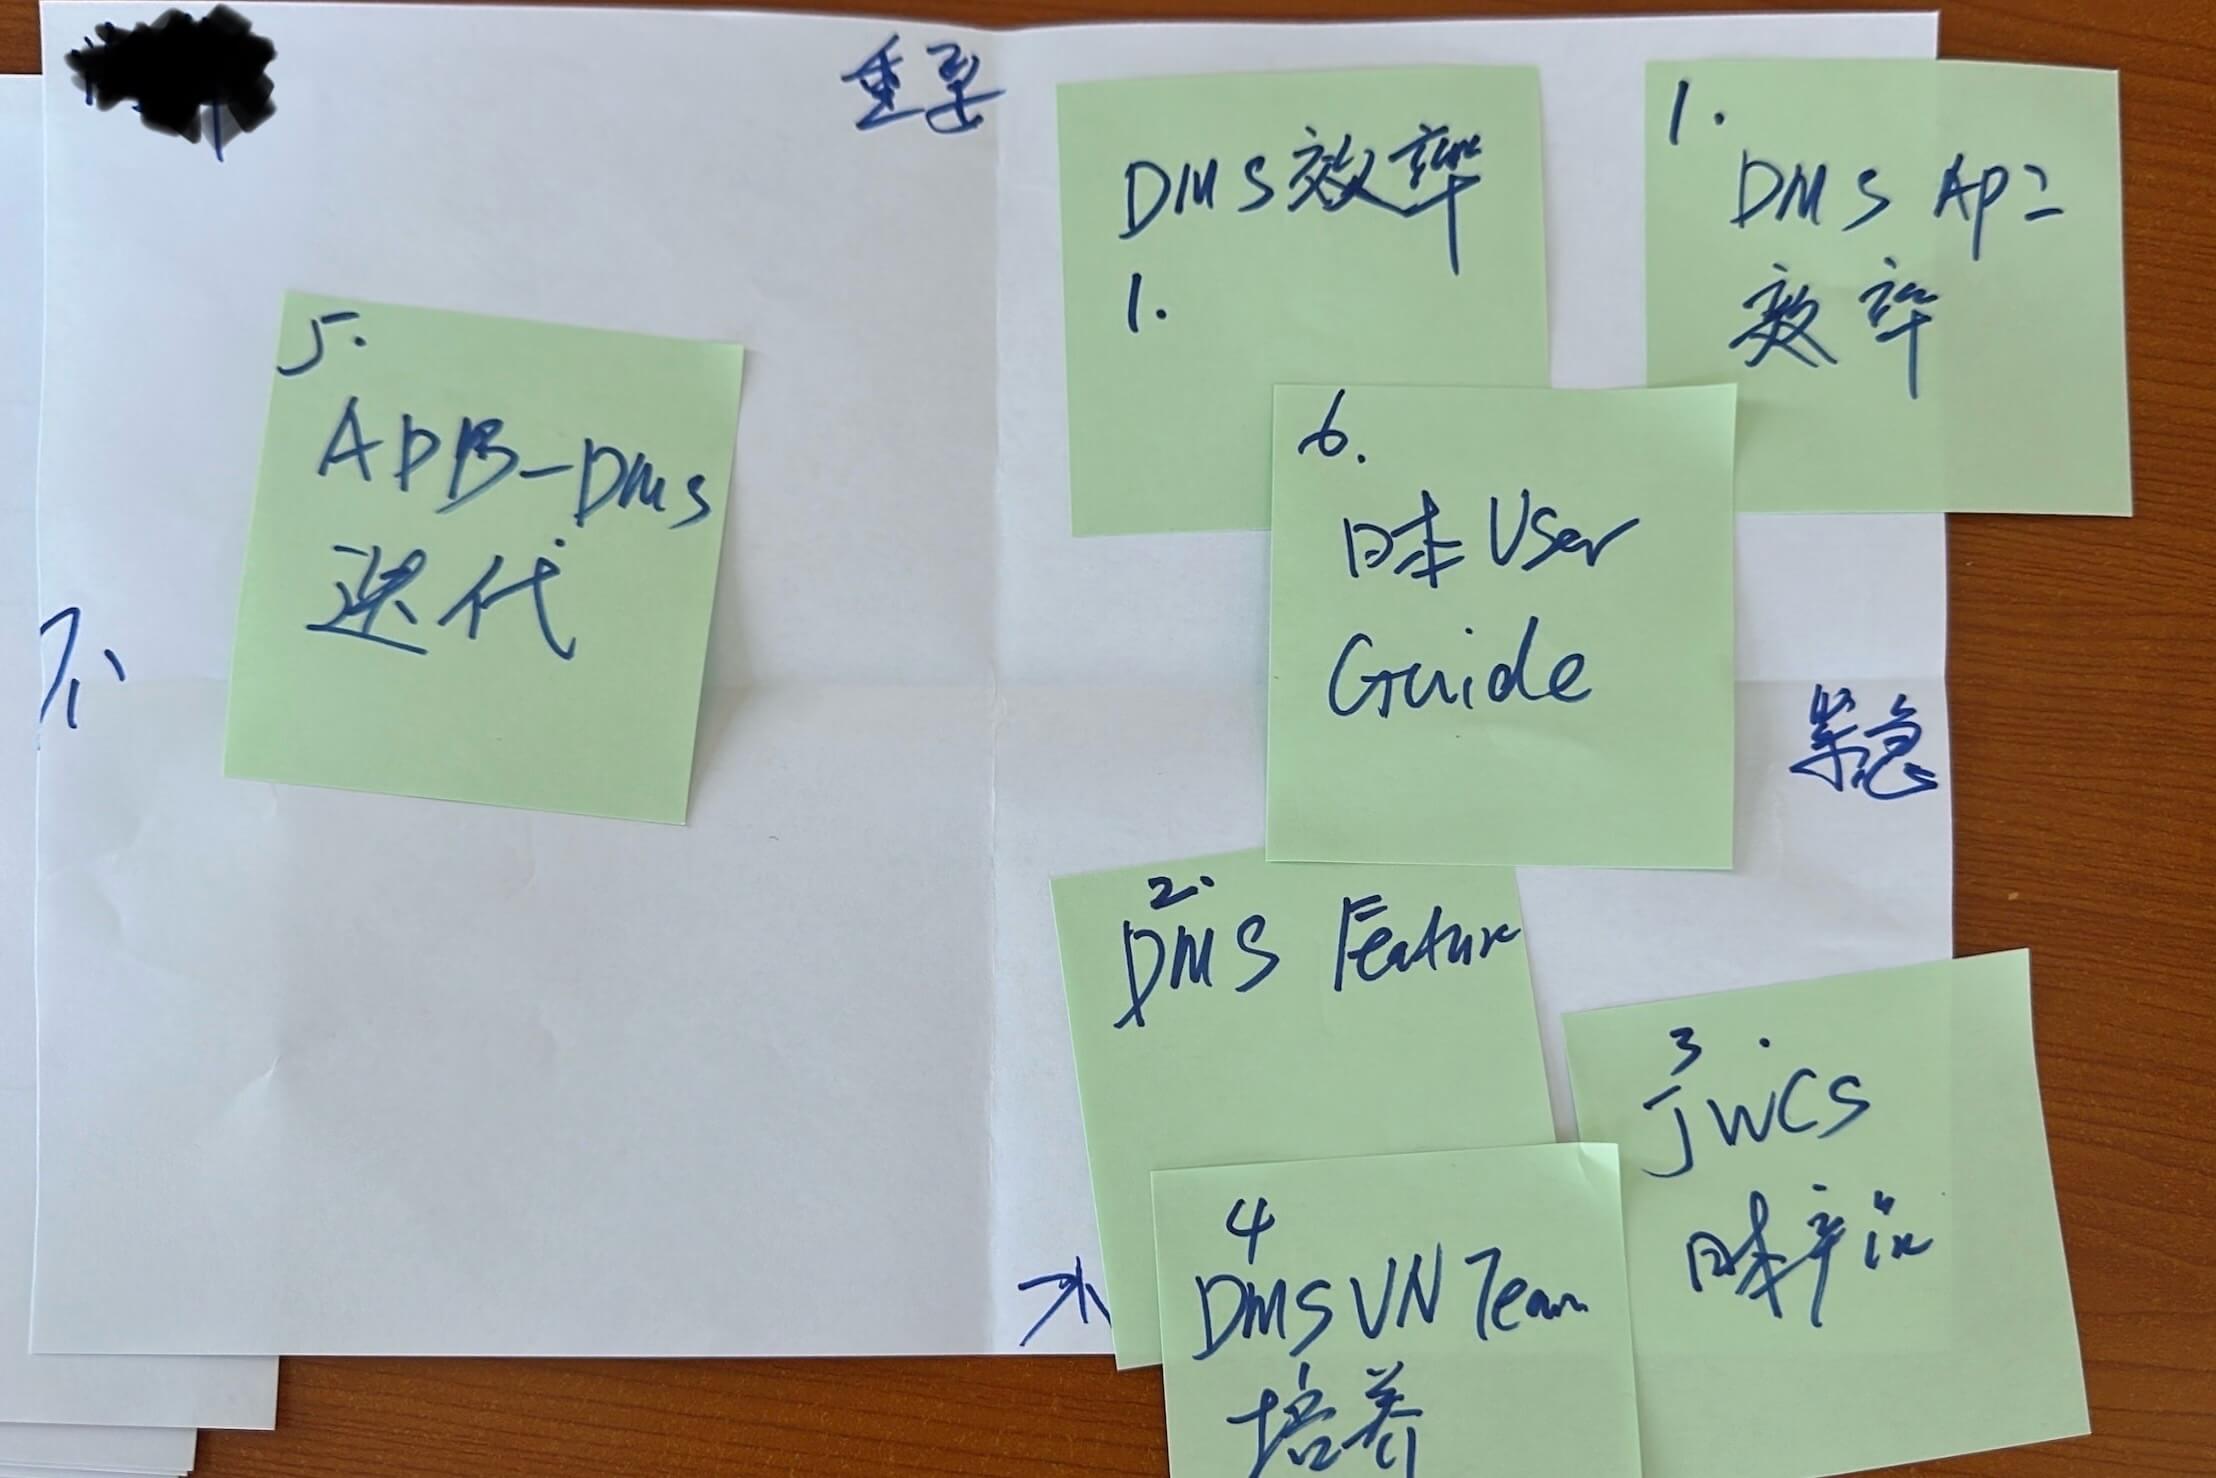 重要
DMS效率
1.
1.
DMS API
效率
5.
ADB-DMS
迭代
6.
日本User
Guide
不
紧急
2.
DMS Feature
3.
JWCS
日本
不
4
DMS VN Team
培养